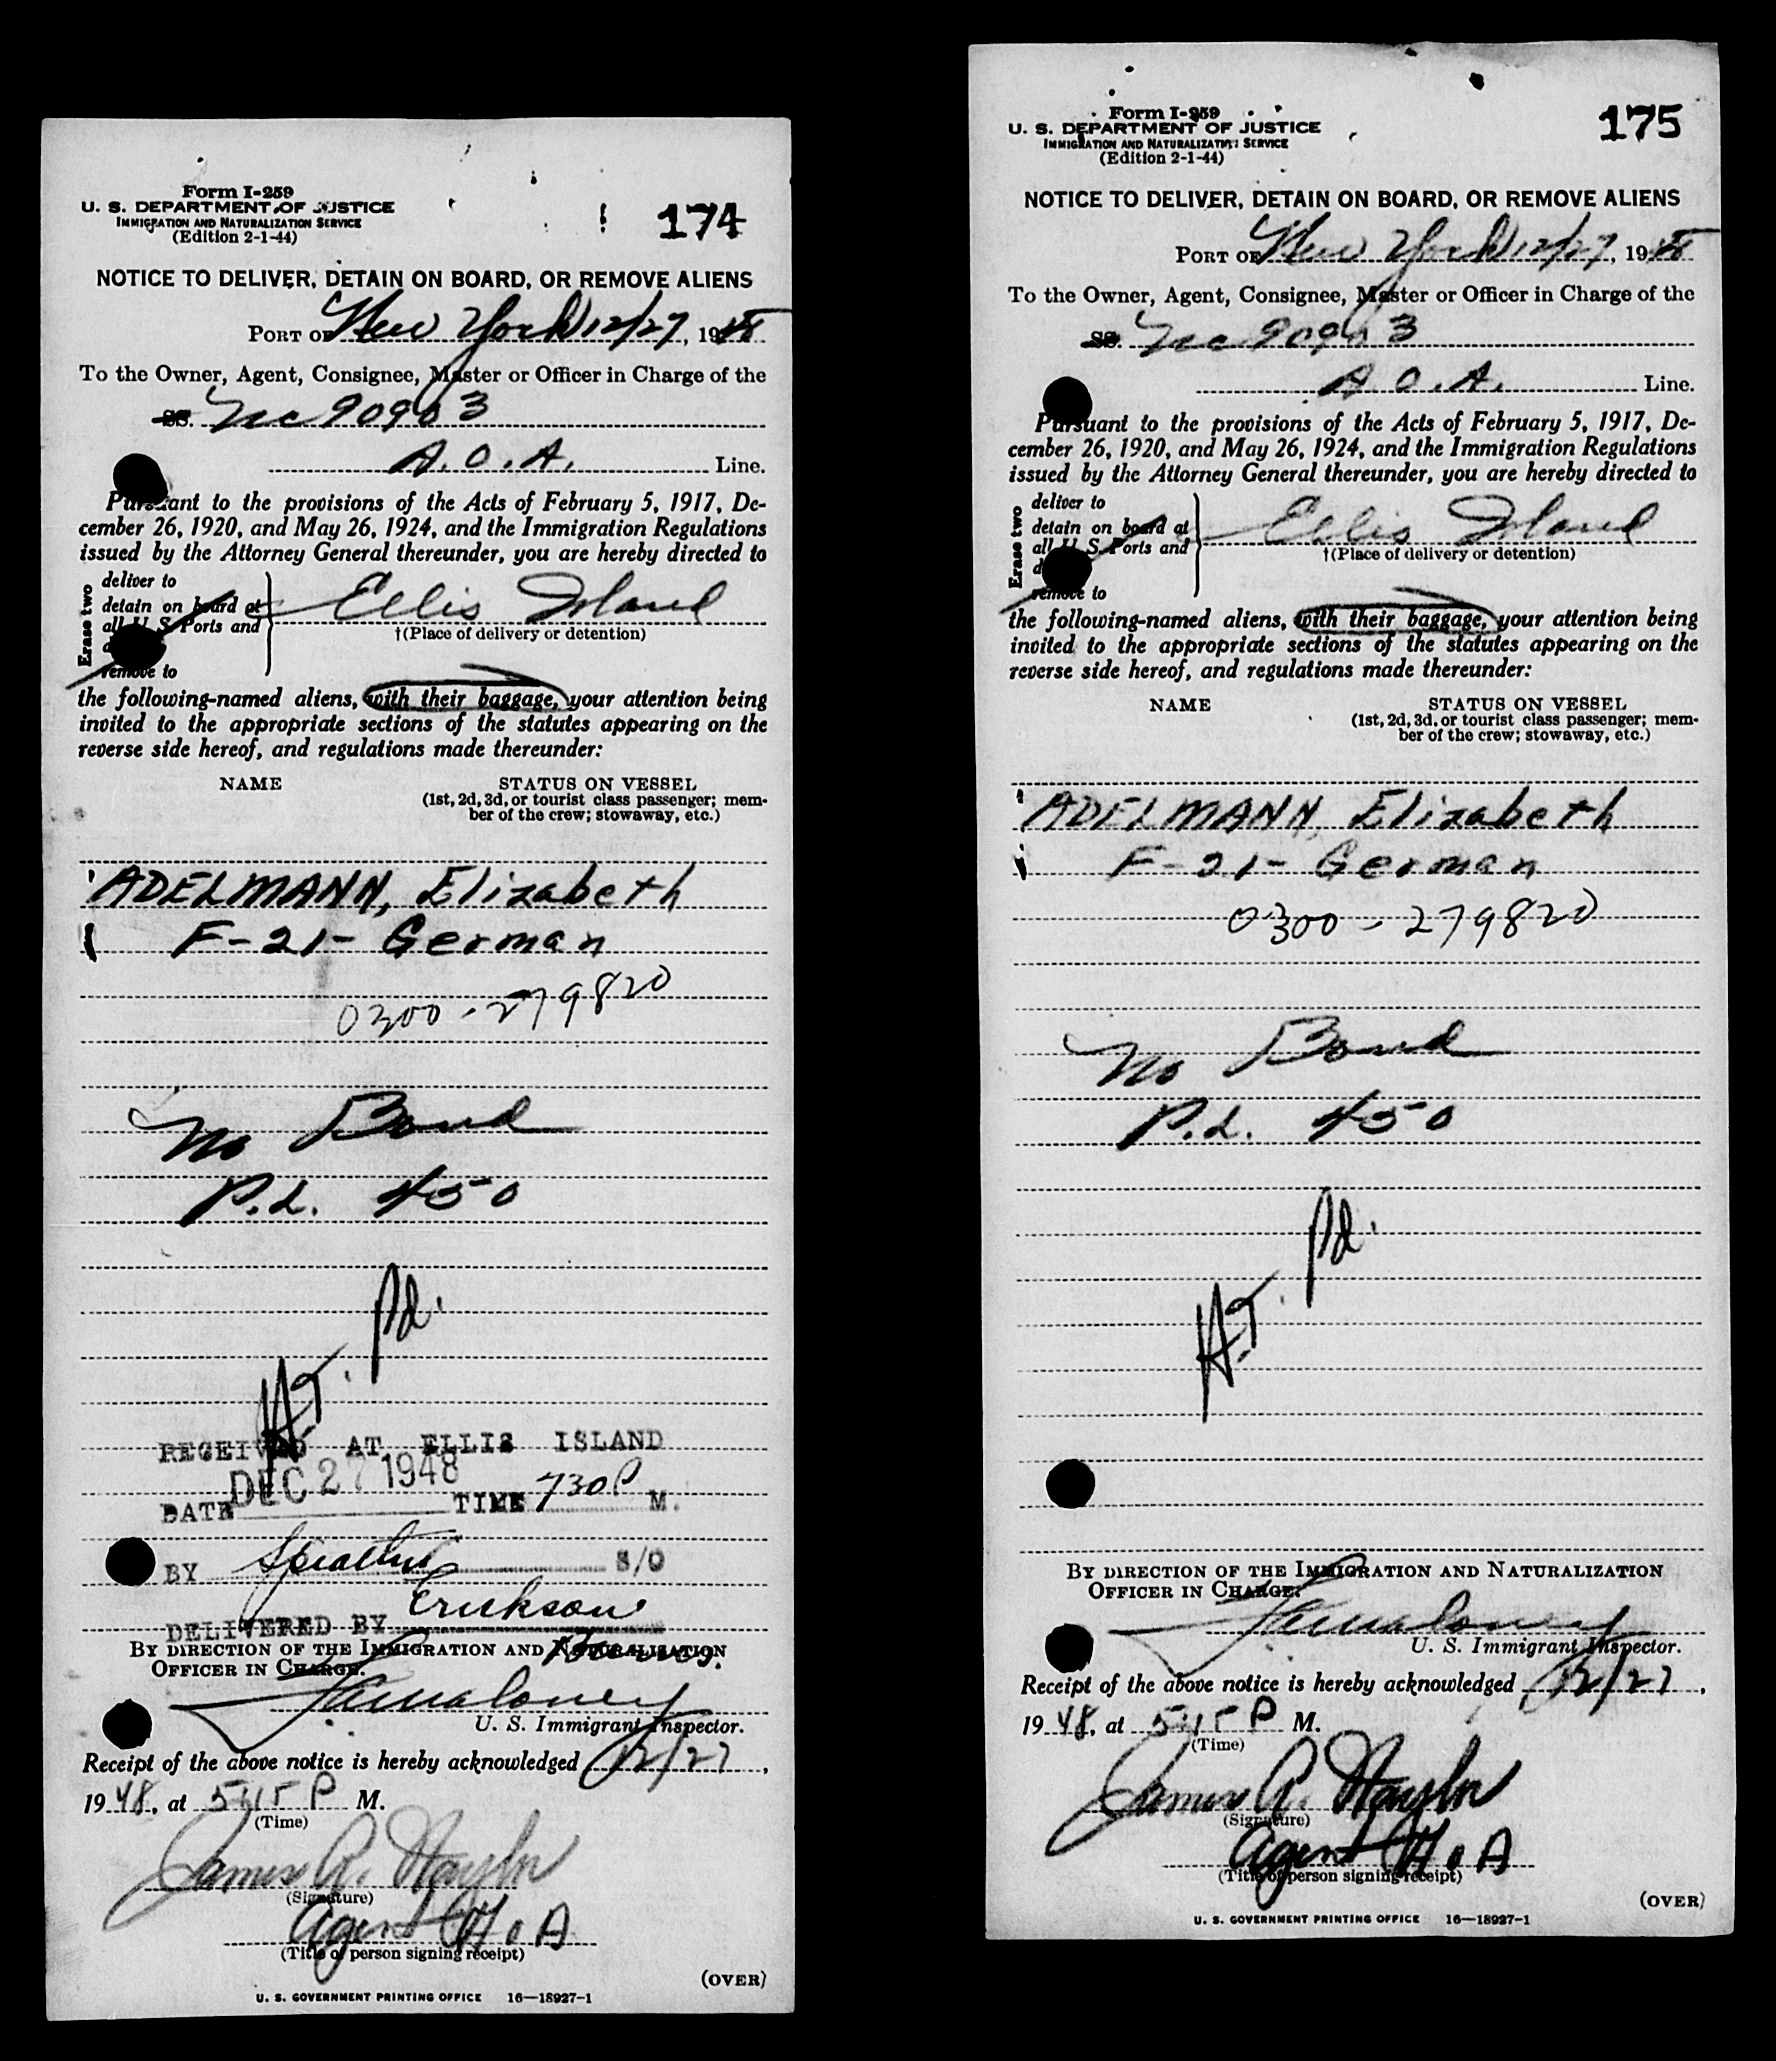 Form I-259
U. S. DEPARTMENT OF JUSTICE
IMMIGRATION AND NATURALIZATION SERVICE
(Edition 2-1-44)
174
NOTICE TO DELIVER, DETAIN ON BOARD, OR REMOVE ALIENS
PORT OF New York 12/27, 1948
To the Owner, Agent, Consignee, Master or Officer in Charge of the
SS. Nc 90903
A.O.A. Line.
Pursuant to the provisions of the Acts of February 5, 1917, De-
cember 26, 1920, and May 26, 1924, and the Immigration Regulations
issued by the Attorney General thereunder, you are hereby directed to
Erase two
deliver to
detain on board at
all U. S. Ports and
remove to
Ellis Island
†(Place of delivery or detention)
the following-named aliens, with their baggage, your attention being
invited to the appropriate sections of the statutes appearing on the
reverse side hereof, and regulations made thereunder:
NAME STATUS ON VESSEL
(1st, 2d, 3d, or tourist class passenger; mem-
ber of the crew; stowaway, etc.)
ADELMANN, Elizabeth
F-21- German
0300-279820
No Bond
P.L. 450
H.T. Pd.
RECEIVED AT ELLIS ISLAND
DATE DEC 27 1948 TIME 730 P M.
BY S/O
DELIVERED BY Erickson
BY DIRECTION OF THE IMMIGRATION AND NATURALIZATION
OFFICER IN CHARGE.
U. S. Immigrant Inspector.
Receipt of the above notice is hereby acknowledged 12/27,
1948, at 5:15 P M.
(Time)
James R. Naylor
(Signature)
Agent A o A
(Title of person signing receipt)
(OVER)
U. S. GOVERNMENT PRINTING OFFICE 16—18927-1
Form I-259
U. S. DEPARTMENT OF JUSTICE
IMMIGRATION AND NATURALIZATION SERVICE
(Edition 2-1-44)
175
NOTICE TO DELIVER, DETAIN ON BOARD, OR REMOVE ALIENS
PORT OF New York 12/27, 1948
To the Owner, Agent, Consignee, Master or Officer in Charge of the
SS. Nc 90903
A.O.A. Line.
Pursuant to the provisions of the Acts of February 5, 1917, De-
cember 26, 1920, and May 26, 1924, and the Immigration Regulations
issued by the Attorney General thereunder, you are hereby directed to
Erase two
deliver to
detain on board at
all U. S. Ports and
remove to
Ellis Island
†(Place of delivery or detention)
the following-named aliens, with their baggage, your attention being
invited to the appropriate sections of the statutes appearing on the
reverse side hereof, and regulations made thereunder:
NAME STATUS ON VESSEL
(1st, 2d, 3d, or tourist class passenger; mem-
ber of the crew; stowaway, etc.)
ADELMANN, Elizabeth
F-21- German
0300-279820
No Bond
P.L. 450
H.T. Pd.
BY DIRECTION OF THE IMMIGRATION AND NATURALIZATION
OFFICER IN CHARGE.
U. S. Immigrant Inspector.
Receipt of the above notice is hereby acknowledged 12/27,
1948, at 5:15 P M.
(Time)
James R. Naylor
(Signature)
Agent A o A
(Title of person signing receipt)
(OVER)
U. S. GOVERNMENT PRINTING OFFICE 16—18927-1